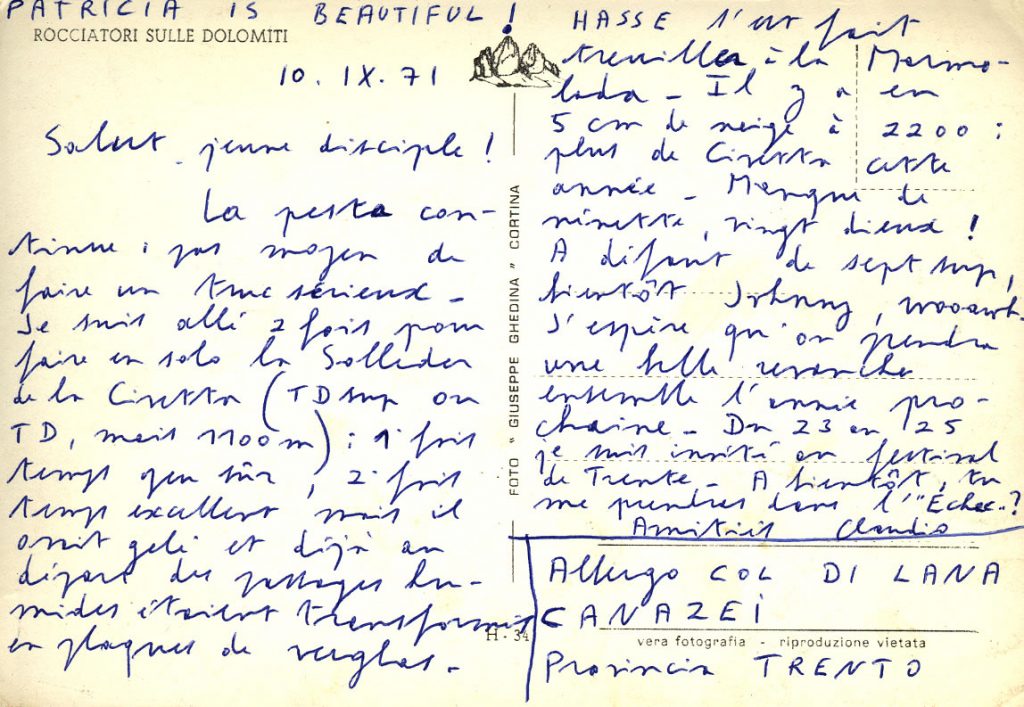 PATRICIA IS BEAUTIFUL !
ROCCIATORI SULLE DOLOMITI
10. IX. 71
Salut jeune disciple !
La peste con-
tinue : pas moyen de
faire un truc sérieux -
Je suis allé 2 fois pour
faire en solo la Solleder
de la Civetta (TD sup ou
TD, mais 1100m) : 1° fois
temps peu sûr, 2° fois
temps excellent mais il
avait gelé et déjà au
départ des passages hu-
mides étaient transformés
en plaques de verglas -
HASSE s'est fait
treuiller à la Marmo-
lada - Il y a eu
5 cm de neige à 2200 :
plus de Civetta cette
année - Manque de
minette, vingt dieux !
A défaut de sept sup,
bientôt Johnny, wooowh -
J'espère qu'on prendra
une belle revanche
ensemble l'année pro-
chaine - Du 23 au 25
je suis invité au festival
de Trente - A bientôt, tu
me prendras dans l'"Échec..?
Amitiés Claudio
FOTO " GIUSEPPE GHEDINA " CORTINA
Albergo COL DI LANA
CANAZEI
H - 34
vera fotografia - riproduzione vietata
Provincia TRENTO